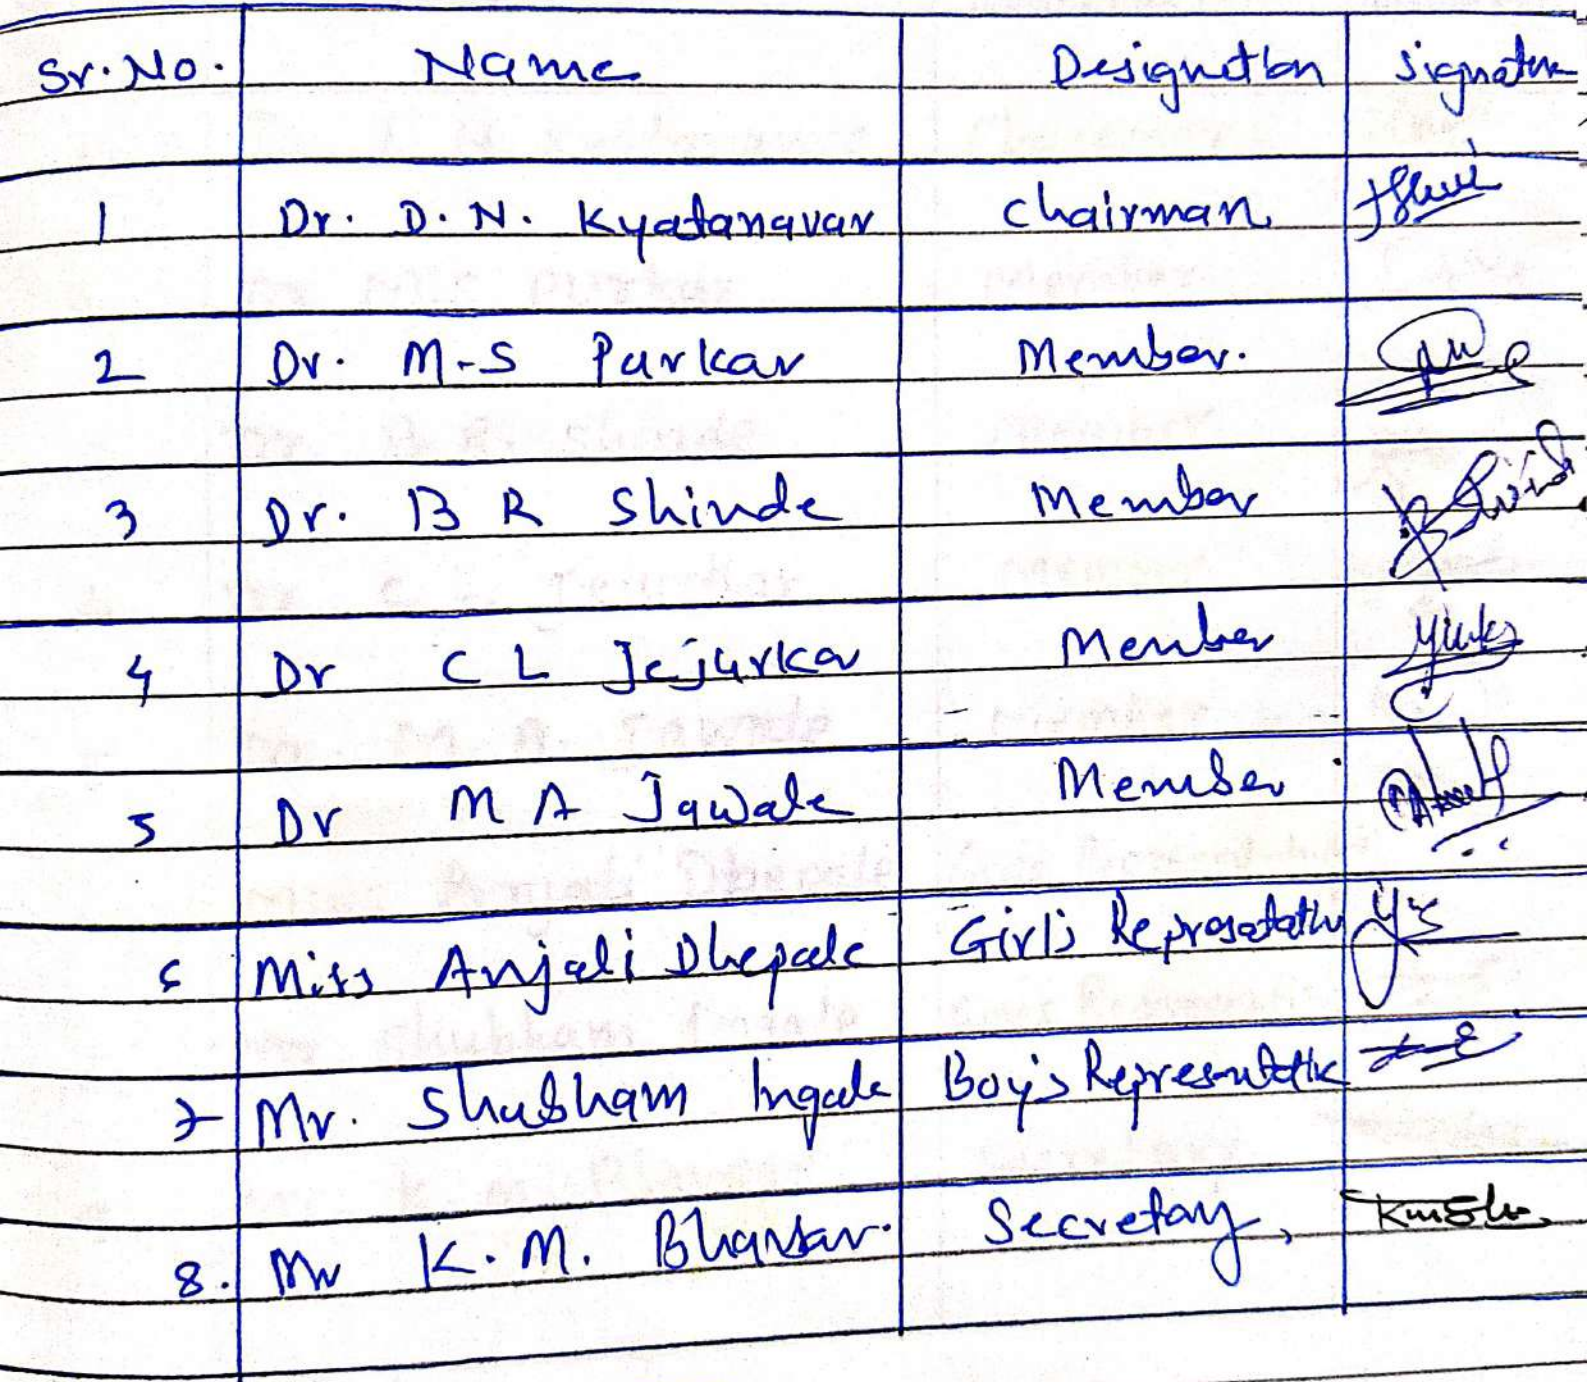 Sr. No. Name Designation Signature
1 Dr. D. N. Kyatanavar Chairman
2 Dr. M-S Purkar Member.
3 Dr. B R Shinde Member
4 Dr C L Jejurkar Member
5 Dr M A Jawale Member
6 Miss Anjali Dhepale Girl's Representative
7 Mr. Shubham Ingale Boy's Representative
8. Mr K. M. Bhavsar. Secretary,